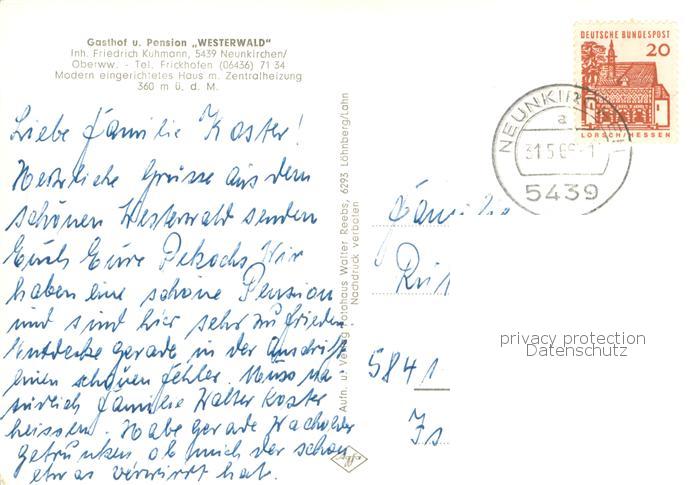 Gasthof u. Pension „WESTERWALD"
Inh. Friedrich Kuhmann, 5439 Neunkirchen/
Oberww. - Tel. Frickhofen (06436) 71 34
Modern eingerichtetes Haus m. Zentralheizung
360 m ü. d. M.
Liebe Familie Koster!
Herzliche Grüsse aus dem
schönen Westerwald senden
Euch Eure Wir
haben eine schöne Pension
und sind hier sehr zufrieden.
Entdecke gerade in der Anschrift
einen schönen Fehler. Muss na
türlich Familie Walter Koster
heissen. Habe gerade Wacholder
getrunken ob mich der schon
etwas verwirrt hat.
Aufn. u. Verlag Fotohaus Walter Reebs, 6293 Löhnberg/Lahn
Nachdruck verboten
Agfa
DEUTSCHE BUNDESPOST
20
LORSCH/HESSEN
NEUNKIRCHEN
a
5439
Familie
584
privacy protection
Datenschutz